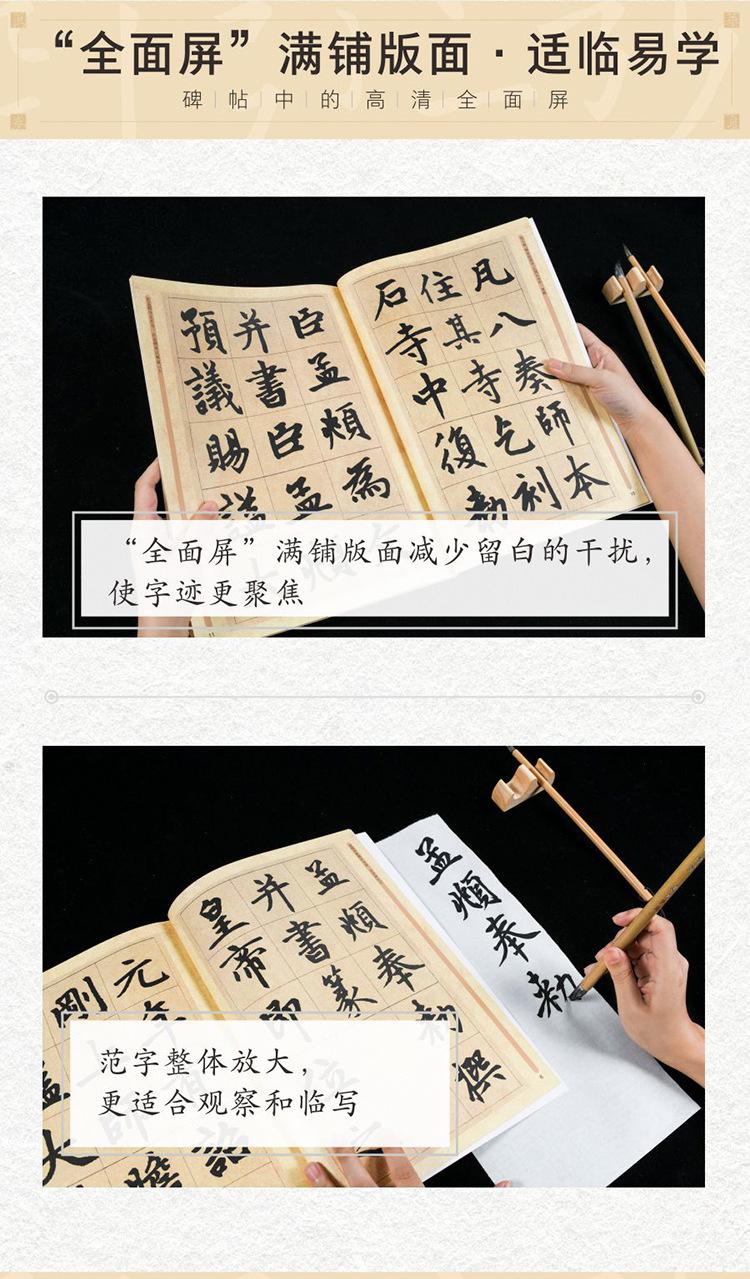 “全面屏”满铺版面·适临易学
碑帖中的高清全面屏
預并臣
議書孟
賜臣頫
孟為
石住凡
寺其八
中寺奏
復乞師
刻本
“全面屏”满铺版面减少留白的干扰，
使字迹更聚焦
皇并孟
帝書頫
篆奉
元
剛
大
孟頫奉勑
范字整体放大，
更适合观察和临写